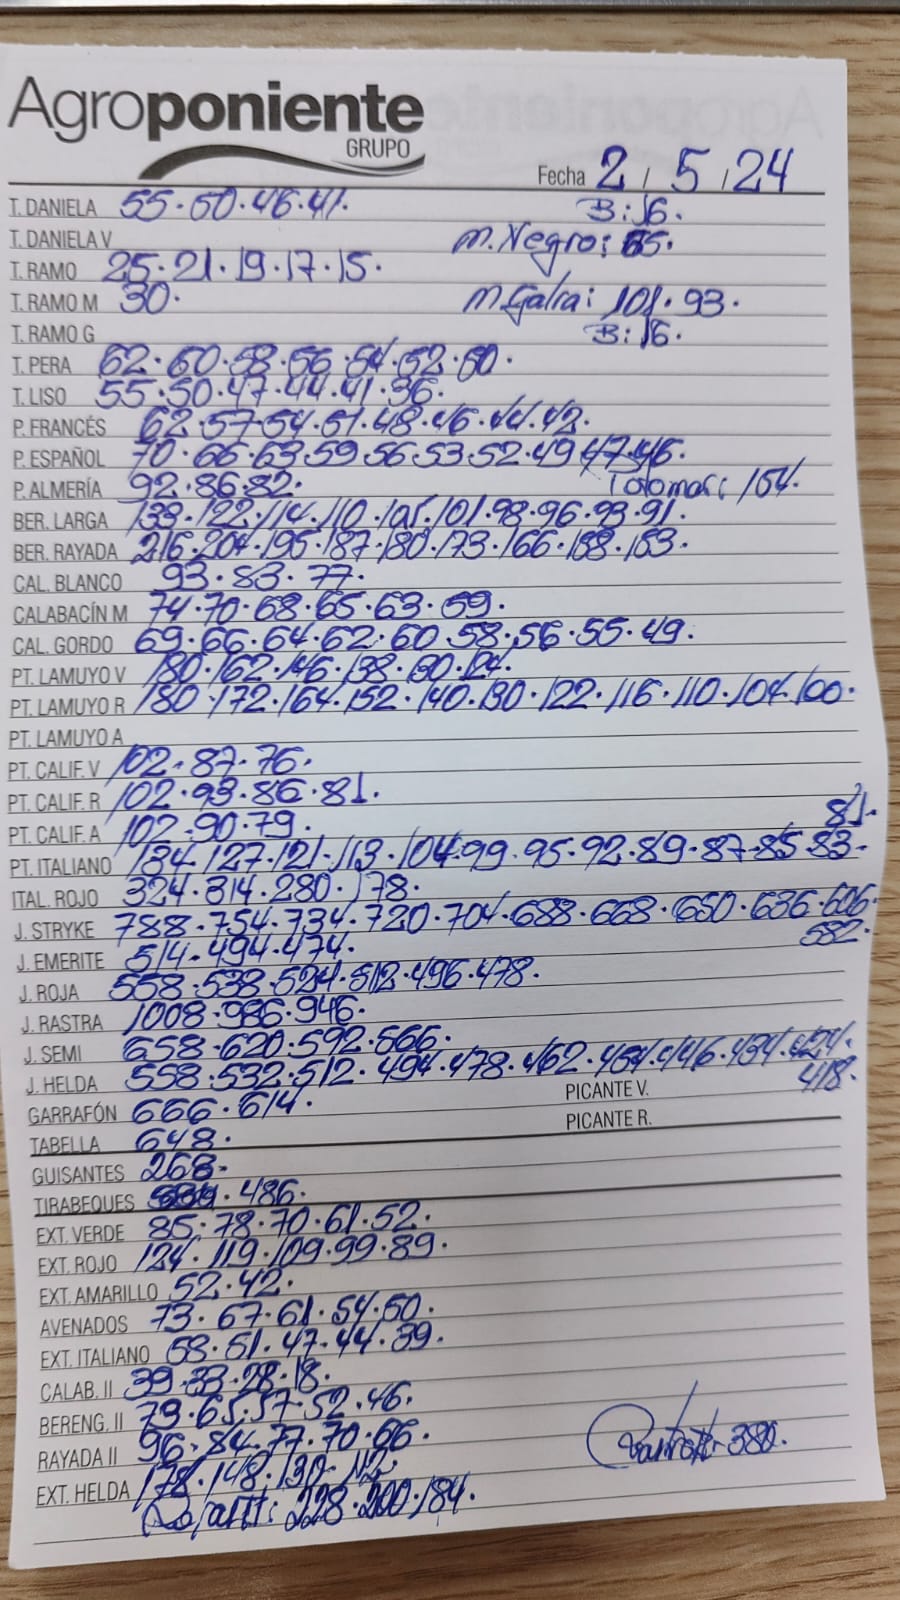 Agroponiente
GRUPO
Fecha 2 / 5 / 24
T. DANIELA 55·50·46·41· B: 16·
T. DANIELA V M. Negro: 65·
T. RAMO 25·21·19·17·15·
T. RAMO M 30· M Galia: 101·93·
T. RAMO G B: 16·
T. PERA 62·60·58·56·54·52·50·
T. LISO 55·50·47·44·41·36·
P. FRANCÉS 62·57·54·51·48·46·44·42·
P. ESPAÑOL 70·66·63·59·56·53·52·49·47·46·
P. ALMERÍA 92·86·82· 154·
BER. LARGA 139·122·114·110·105·101·98·96·93·91·
BER. RAYADA 216·204·195·187·180·173·166·158·153·
CAL. BLANCO 93·83·77·
CALABACÍN M 74·70·68·65·63·59·
CAL. GORDO 69·66·64·62·60·58·56·55·49·
PT. LAMUYO V 180·162·146·138·130·124·
PT. LAMUYO R 180·172·164·152·140·130·122·116·110·104·100·
PT. LAMUYO A
PT. CALIF. V 102·87·76·
PT. CALIF. R 102·93·86·81·
PT. CALIF. A 102·90·79· 81·
PT. ITALIANO 134·127·121·113·104·99·95·92·89·87·85·83·
ITAL. ROJO 324·314·280·178·
J. STRYKE 788·754·734·720·704·688·668·650·636·606·
582·
J. EMERITE 514·494·474·
J. ROJA 558·538·524·512·496·478·
J. RASTRA 1008·986·946·
J. SEMI 658·620·592·566·
J. HELDA 558·532·512·494·478·462·454·446·434·424·
418·
GARRAFÓN 666·614· PICANTE V.
TABELLA 648· PICANTE R.
GUISANTES 268·
TIRABEQUES 486·
EXT. VERDE 85·78·70·61·52·
EXT. ROJO 124·119·109·99·89·
EXT. AMARILLO 52·42·
AVENADOS 73·67·61·54·50·
EXT. ITALIANO 58·51·47·44·39·
CALAB. II 39·33·28·18·
BERENG. II 79·65·57·52·46·
RAYADA II 96·84·77·70·66· 380·
EXT. HELDA 178·148·130·112·
228·200·184·